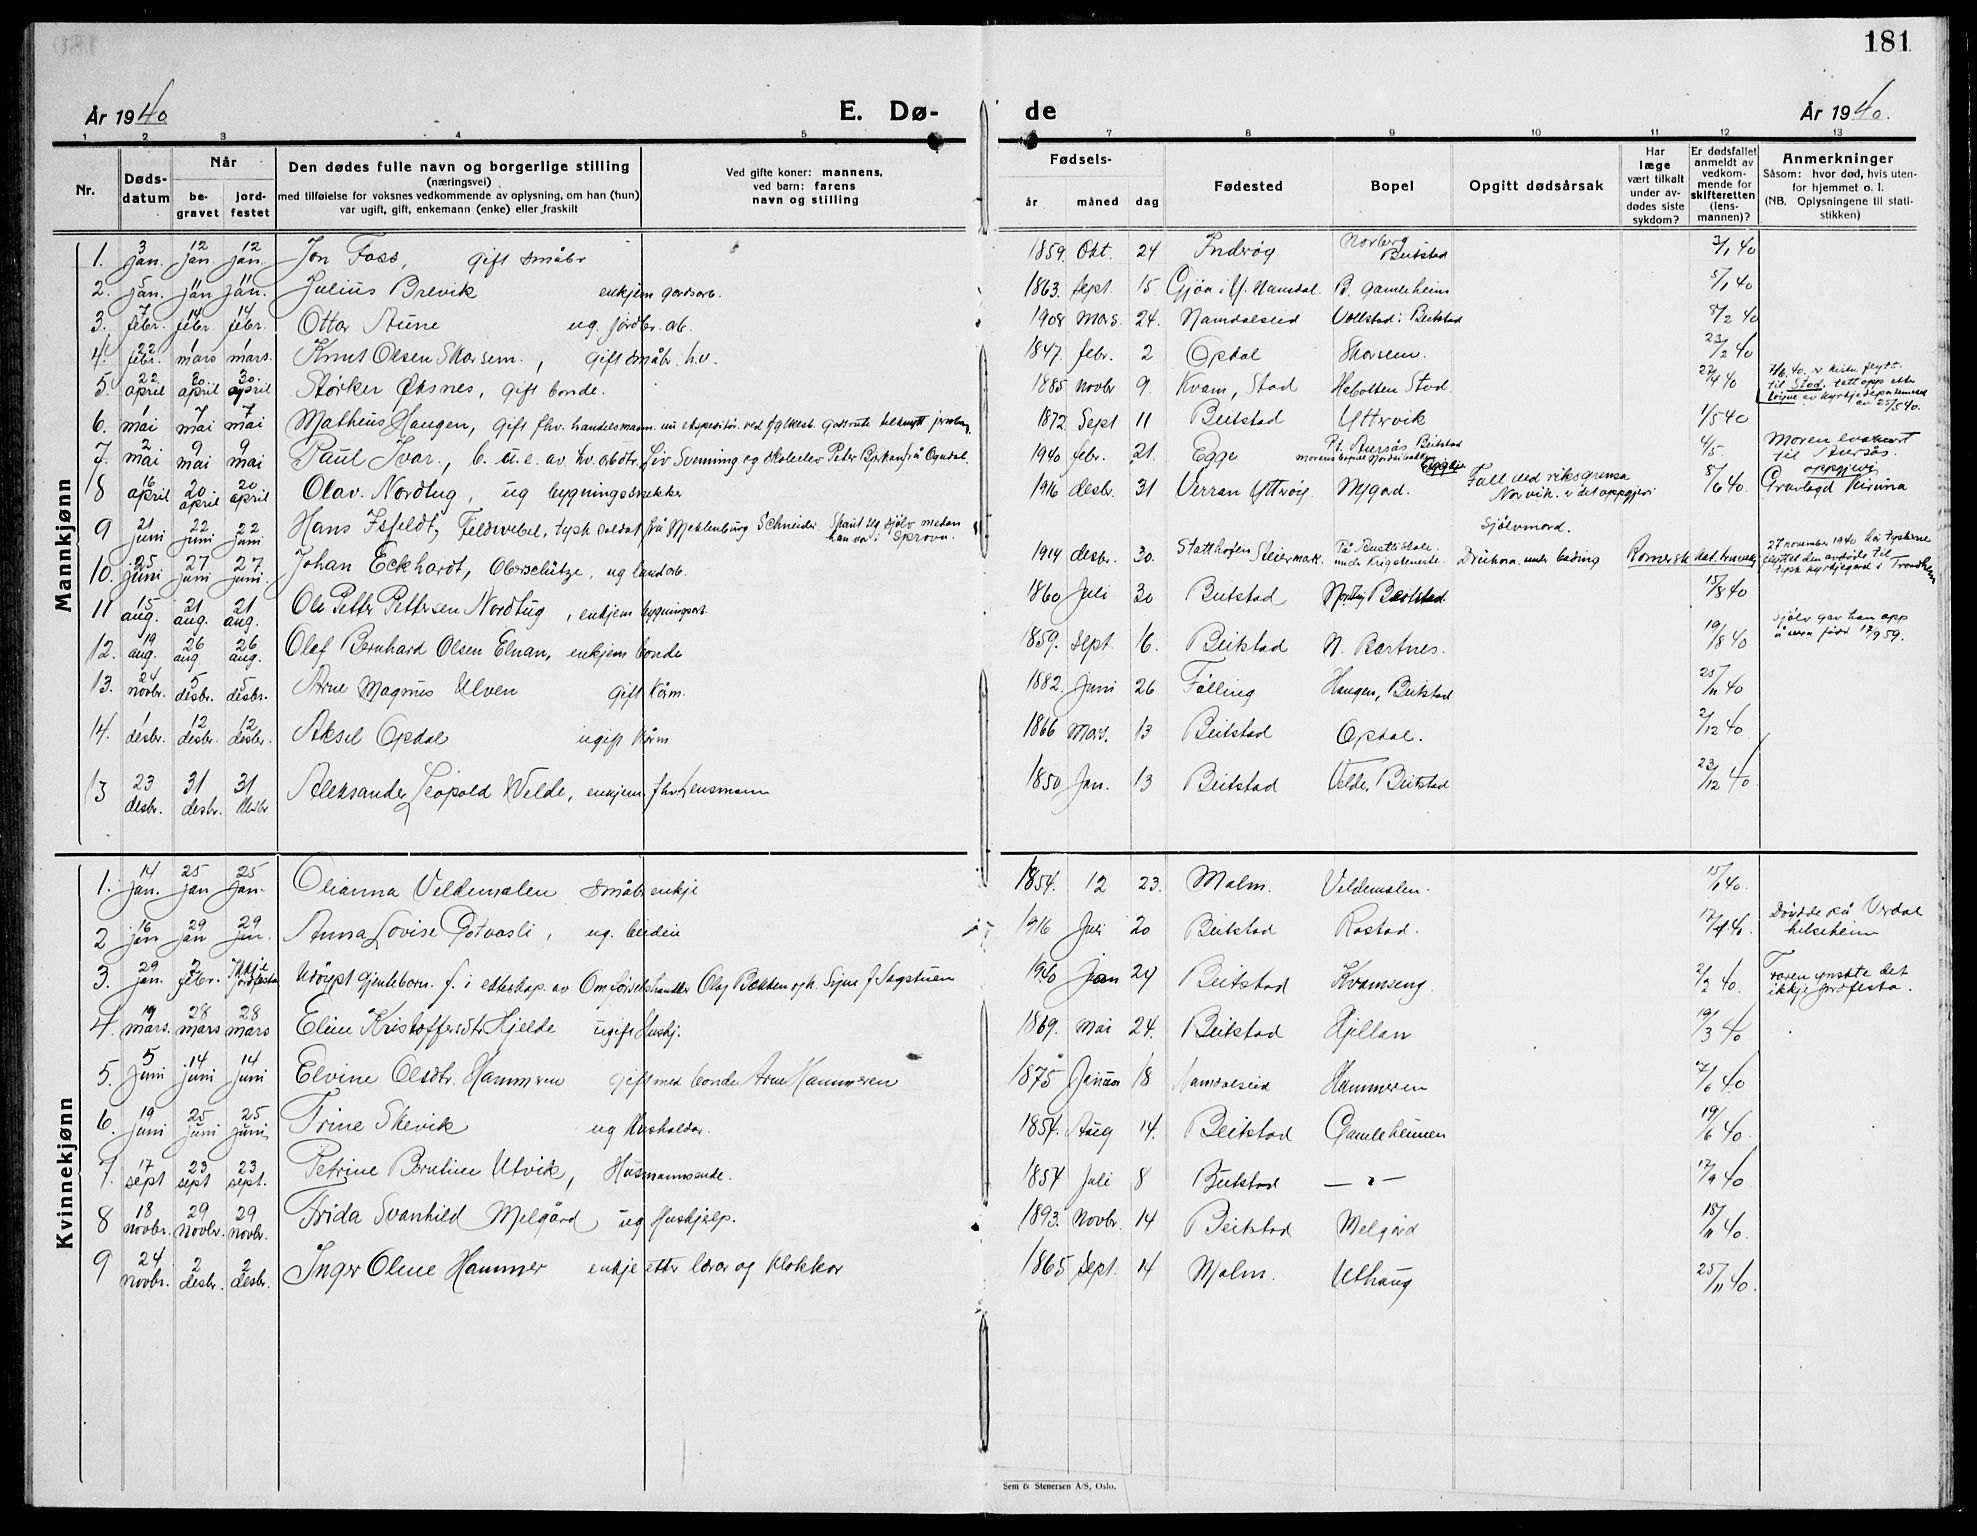 181
År 1940
E. Dø-
de
År 1940.
1 2 3 4 5 6 7 8 9 10 11 12 13
Nr.
Døds-
datum
Når
be-
gravet
jord-
festet
Den dødes fulle navn og borgerlige stilling
(næringsvei)
med tilføielse for voksnes vedkommende av oplysning, om han (hun)
var ugift, gift, enkemann (enke) eller fraskilt
Ved gifte koner: mannens,
ved barn: farens
navn og stilling
Fødsels-
år måned dag
Fødested
Bopel
Opgitt dødsårsak
Har
læge
vært tilkalt
under av-
dødes siste
sykdom?
Er dødsfallet
anmeldt av
vedkom-
mende for
skifteretten
(lens-
mannen)?
Anmerkninger
Såsom: hvor død, hvis uten-
for hjemmet o. l.
(NB. Oplysningene til stati-
stikken)
Mannkjønn
1. 3 jan. 12 jan. 12 jan. Jon Foss, gift småbr 1859. Okt. 24 Inderøy Norberg Beitstad 3/1 40
2. 5 jan. 11 jan 11 jan. Julius Brevik enkjem gardsarb. 1863. Sept. 15. Gjøa i Y. Namdal. B. gamleheim 5/1 40
3. 7 febr. 14 febr. 14 febr. Ottar Aune ug. jordbr. arb. 1908 Mars. 24. Namdalseid Vollstad i Beitstad 8/2 40
4. 22 febr. 1 mars 1 mars. Knut Olsen Skarsem, gift småbr. h.v. 1847. febr. 2 Opdal Skarsem. 23/2 40
5. 22 april 30 april 30 april Størker Øksnes, gift bonde. 1885 Novbr 9. Kvam, Stod Habolten Stod. 27/4 40
til Stod. tatt opp etter
av 25/5 40.
6. 1 mai 7 mai 7 mai Matheus Haugen, gift fhv. handelsmann. nu ekspeditør ved fylkesb. godsrute tilknytt jernbng. 1872 Sept 11 Beitstad Yttervik 1/5 40
7. 2 mai 9 mai 9 mai Paul Ivar, b. u. e. av hv. arbdtr. Liv Svenning og skoleelev Peter Bjerkan frå Ogndal. 1940 febr. 21. Egge Pt. Aursås Beitstad 4/5 Moren evakuert
til Aursås.
8 16 april 20 april 20 april Olav Nordtug, ug bygningssnekker 1916 desbr. 31 Verran Ytterøy Nygard. Fall ved riksgrensa
Norvik. er det oppgjevi 8/6 40. oppgjevi
Gravlagd Kiruna
9 21 juni 22 juni 22 juni Hans Isfeldt, Feldwebel, tysk soldat frå Meklenburg Schneider. Skaut seg sjølv medan
han var i Sprova. Sjølvmord.
10. 25 juni 27 juni 27 juni. Johan Eckhardt, Oberschütze, ug landarb. 1914 desbr. 30. Statthofen Steiermark. På Austli skole.
under krigstjeneste. Drukna under bading Romersk kat. truvedkj. 27 november 1940 har tyskerne
flyttet den avdøde til
tysk kyrkjegard i Trondheim
11 15 aug. 21 aug. 21 aug. Ole Petter Pettersen Nordtug, enkjem bygningsarb. 1860 Juli 30 Beitstad 15/8 40
12. 19 aug. 26 aug 26 aug. Olaf Bernhard Olsen Elnan, enkjem bonde 1859. Sept. 16. Beitstad N. Bartnes. 19/8 40 Sjølv gav han opp
å vera fødd 17/9 59.
13. 24 novbr. 5 desbr. 5 desbr. Arne Magnus Ulven gift kårm. 1882. Juni 26 Følling Haugen, Beitstad 25/11 40
14. 1 desbr. 12 desbr. 12 desbr. Aksel Opdal ugift kårm 1866 Mars. 13 Beitstad Opdal. 2/12 40
13 23 desbr. 31 desbr. 31 desbr Aleksander Leopold Welde, enkjem. fhv. Lensmann 1850 Jan. 13 Beitstad Velde, Beitstad 23/12 40
Kvinnekjønn
1. 14 jan. 25 jan 25 jan. Olianna Veldemalen småbr. enkje 1854. 12 23. Malm. Veldemalen. 15/1 40.
2 16 jan 29 jan 29 jan. Anna Lovise Gotvasli, ug. beidin 1916 Juli 20 Beitstad Rostad. 17/1 40. Døydde på Verdal
helseheim
3. 29 jan. 2 febr. Ikkje jordfesta Udøypt gjenteborn. f. i ekteskap. av Omførselshandler Olaf Bakken og h. Signe f Sagstuen 1940 Jan 24 Beitstad Kvamseng. 2/2 40. Faren ynskte det
ikkje jordfesta.
4. 19 mars. 28 mars 28 mars Eline Kristoffersdtr. Hjelde ugift Huskj. 1869. Mai 24. Beitstad Hjellan 19/3 40
5. 5 juni 14 juni 14 juni Elvine Olsdtr. Hammeren gift med bonde Arne Hammeren 1875 Januar 18 Namdalseid Hammeren 7/6 40
6. 19 juni 25 juni 25 juni Trine Skevik ug Husholdar. 1854. Aug 14. Beitstad Gamleheimen 19/6 40.
7. 17 sept 23 sept 23 sept. Petrine Berntine Utvik, Husmannsenke. 1854 Juli 8 Beitstad — " — 17/9 40
8 18 novbr. 29 Novbr. 29 novbr. Frida Svanhild Melgård ug Hushjelp. 1893. Novbr. 14 Beitstad Melgård 18/11 40.
9 24 novbr. 2 desbr. 2 desbr. Inger Oline Hammer enkje etter lærar og klokkar 1865 Sept. 14 Malm. Uthaug 25/11 40.
Sem & Stenersen A/S, Oslo.